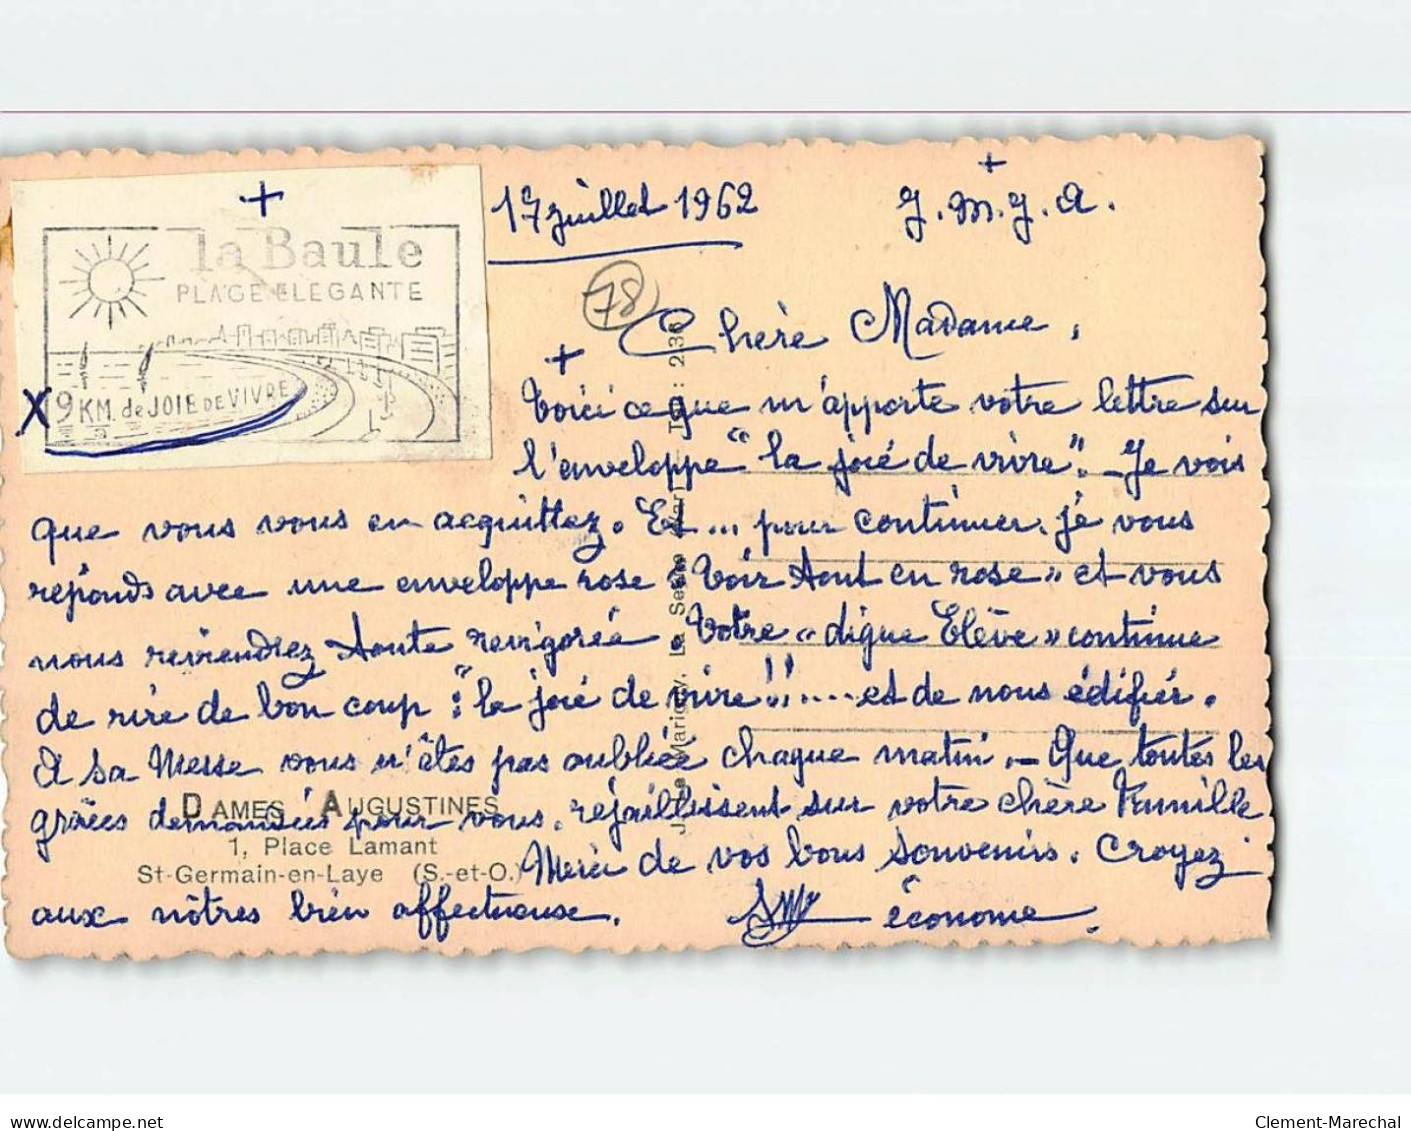 +
la Baule
PLAGE ELEGANTE
X 9 KM. de JOIE DE VIVRE
17 juillet 1962
+
J. M. J. A.
78
Chère Madame,
+
Voici ce que m'apporte votre lettre sur
l'enveloppe "la joie de vivre". - Je vois
que vous vous en acquittez. Et... pour continuer, je vous
réponds avec une enveloppe rose "Voir tout en rose" et vous
nous reviendrez toute revigorée. Votre "digue Elève" continue
de rire de bon coup : "la joie de vivre"!!.... et de nous édifier.
A sa Messe vous n'êtes pas oubliée chaque matin. - Que toutes les
grâces demandées pour vous, rejaillissent sur votre chère Famille
Merci de vos bons souvenirs. Croyez
aux nôtres bien affectueuse.
économe.
DAMES AUGUSTINES
1, Place Lamant
St-Germain-en-Laye (S.-et-O.)
Marigny, La Seyne (Var) - Tél : 2.36
Clement-Marechal
www.delcampe.net